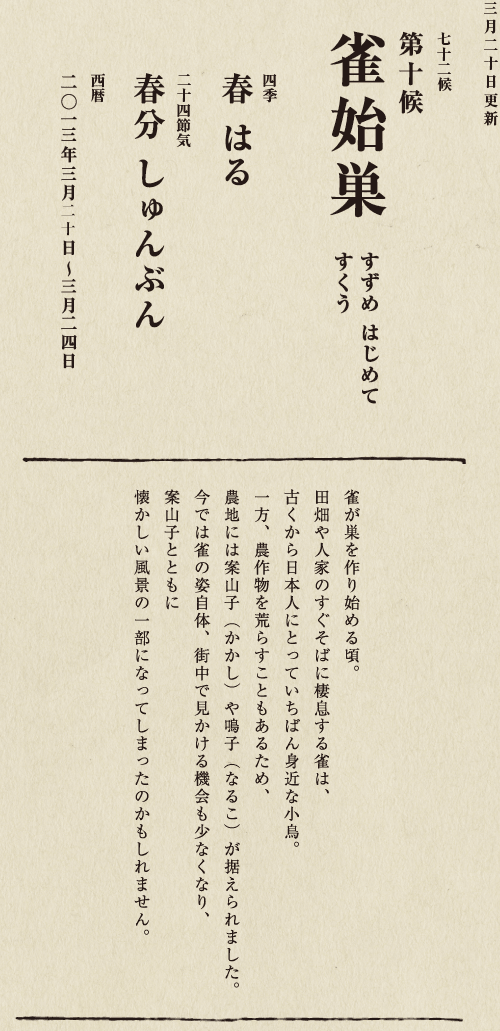 三月二十日更新
七十二候
第十候
雀始巣
すずめ はじめて
すくう
四季
春 はる
二十四節気
春分 しゅんぶん
西暦
二〇一三年三月二十日〜三月二四日
雀が巣を作り始める頃。
田畑や人家のすぐそばに棲息する雀は、
古くから日本人にとっていちばん身近な小鳥。
一方、農作物を荒らすこともあるため、
農地には案山子（かかし）や鳴子（なるこ）が据えられました。
今では雀の姿自体、街中で見かける機会も少なくなり、
案山子とともに
懐かしい風景の一部になってしまったのかもしれません。